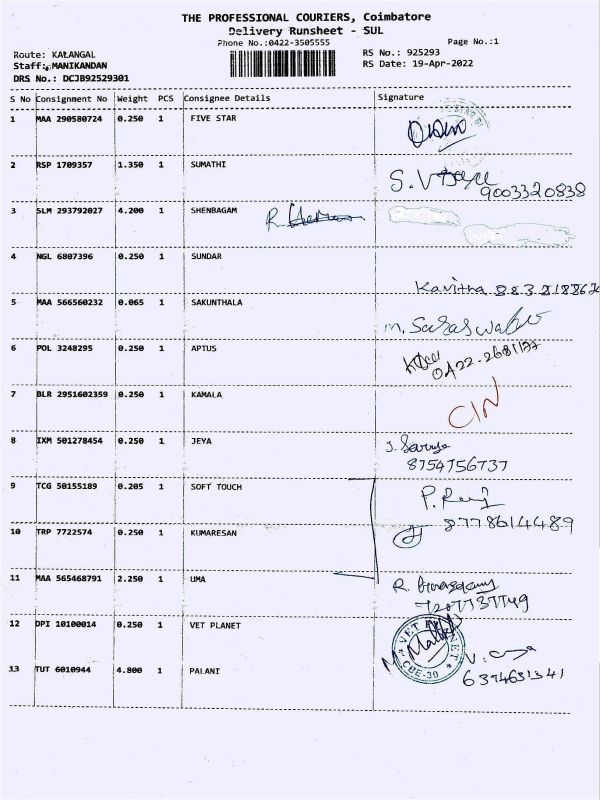 THE PROFESSIONAL COURIERS, Coimbatore
Delivery Runsheet - SUL
Phone No.:0422-3505555
Page No.:1
Route: KALANGAL
RS No.: 925293
Staff: MANIKANDAN
RS Date: 19-Apr-2022
DRS No.: DCJB92529301
S No Consignment No Weight PCS Consignee Details Signature
1 MAA 290580724 0.250 1 FIVE STAR
2 RSP 1709357 1.350 1 SUMATHI S.V
9003320838
3 SLM 293792027 4.200 1 SHENBAGAM R.
4 NGL 6807396 0.250 1 SUNDAR
Kavitha
5 MAA 566560232 0.065 1 SAKUNTHALA
m. Saraswathi
6 POL 3248295 0.250 1 APTUS
0422-2681177
7 BLR 2951602359 0.250 1 KAMALA
CIN
8 IXM 501278454 0.250 1 JEYA J.
8754756737
9 TCG 50155189 0.205 1 SOFT TOUCH P.
8778614489
10 TRP 7722574 0.250 1 KUMARESAN
11 MAA 565468791 2.250 1 UMA R.
12 DPI 10100014 0.250 1 VET PLANET
VET PLANET
CBE-30
13 TUT 6010944 4.800 1 PALANI V.
6374631341